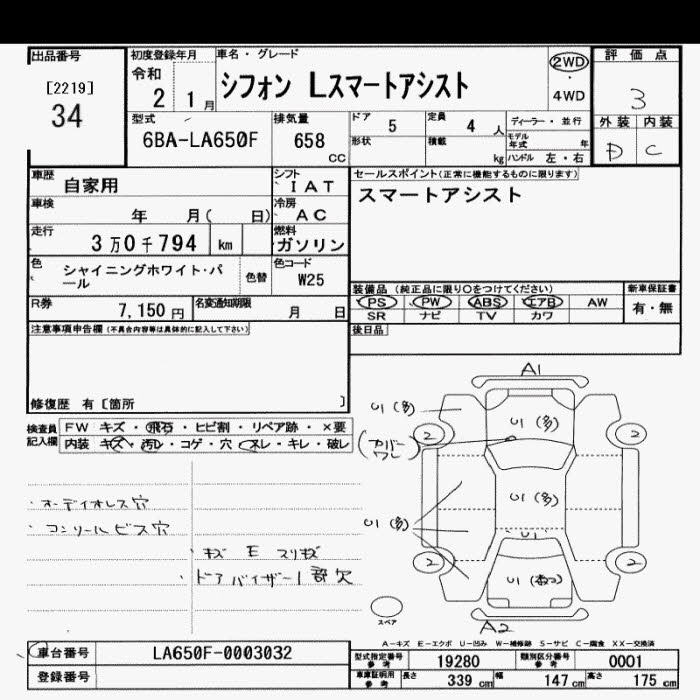 出品番号
[2219]
34
初度登録年月
令和
2 1 月
車名・グレード
シフォン Lスマートアシスト
2WD
・
4WD
評価点
3
外装 内装
D C
型式
6BA-LA650F
排気量
658
CC
ドア
5
定員
4 人
形状
積載
kg
ディーラー・並行
モデル年式 年
ハンドル 左・右
車歴
自家用
シフト
IAT
車検
年 月( 日)
冷房
AC
走行
3万0千794 km
燃料
ガソリン
色
シャイニングホワイト・パール
色替
色コード
W25
R券
7,150円
名変通知期限
月 日
セールスポイント(正常に機能するものに限ります)
スマートアシスト
装備品 (純正品に限り○をつけてください)
PS PW ABS エアB AW
SR ナビ TV カワ
新車保証書
有・無
後日品
注意事項申告欄(不具合内容等は具体的に記入して下さい)
修復歴 有〔箇所 〕
検査員記入欄
FW キズ・飛石・ヒビ割・リペア跡・×要
内装 キズ・汚レ・コゲ・穴・スレ・キレ・破レ
・オーディオレス穴
・コンソールビス穴
・キズ E スリキズ
・ドアバイザー1部欠
A1
U1(多)
U1(多)
(カバーワレ)
2
2
U1(多)
U1(多)
U1
2
2
A2
スペア
A-キズ E-エクボ U-凹み W-補修跡 S-サビ C-腐食 XX-交換済
車台番号
LA650F-0003032
登録番号
型式指定番号
参考
19280
類別区分番号
参考
0001
車庫証明用
参考
長さ
339 cm
幅
147 cm
高さ
175 cm